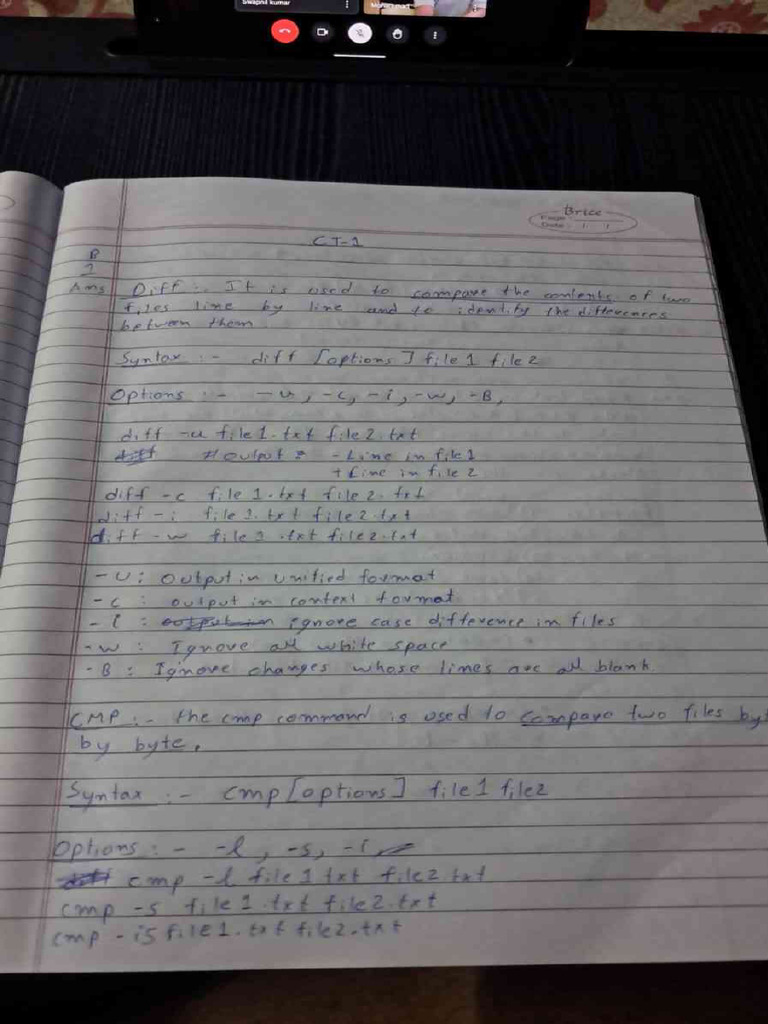 Swapnil kumar
Brice
Page
Date
CT-1
B
2
Ans Diff :- It is used to compare the contents of two
files line by line and to identify the differences
between them
Syntax :- diff [options] file1 file2
Options :- -u, -c, -i, -w, -B,
diff -u file1.txt file2.txt
# output : - Line in file1
+ Line in file2
diff -c file1.txt file2.txt
diff -i file1.txt file2.txt
diff -w file1.txt file2.txt
-U : Output in unified format
-c : output in context format
-i : ignore case difference in files
-w : Ignore all white space
-B : Ignore changes whose lines are all blank
CMP :- the cmp command is used to compare two files by
by byte.
Syntax :- cmp [options] file1 file2
Options :- -l, -s, -i,
cmp -l file1 txt file2 txt
cmp -s file1.txt file2.txt
cmp -i5 file1.txt file2.txt